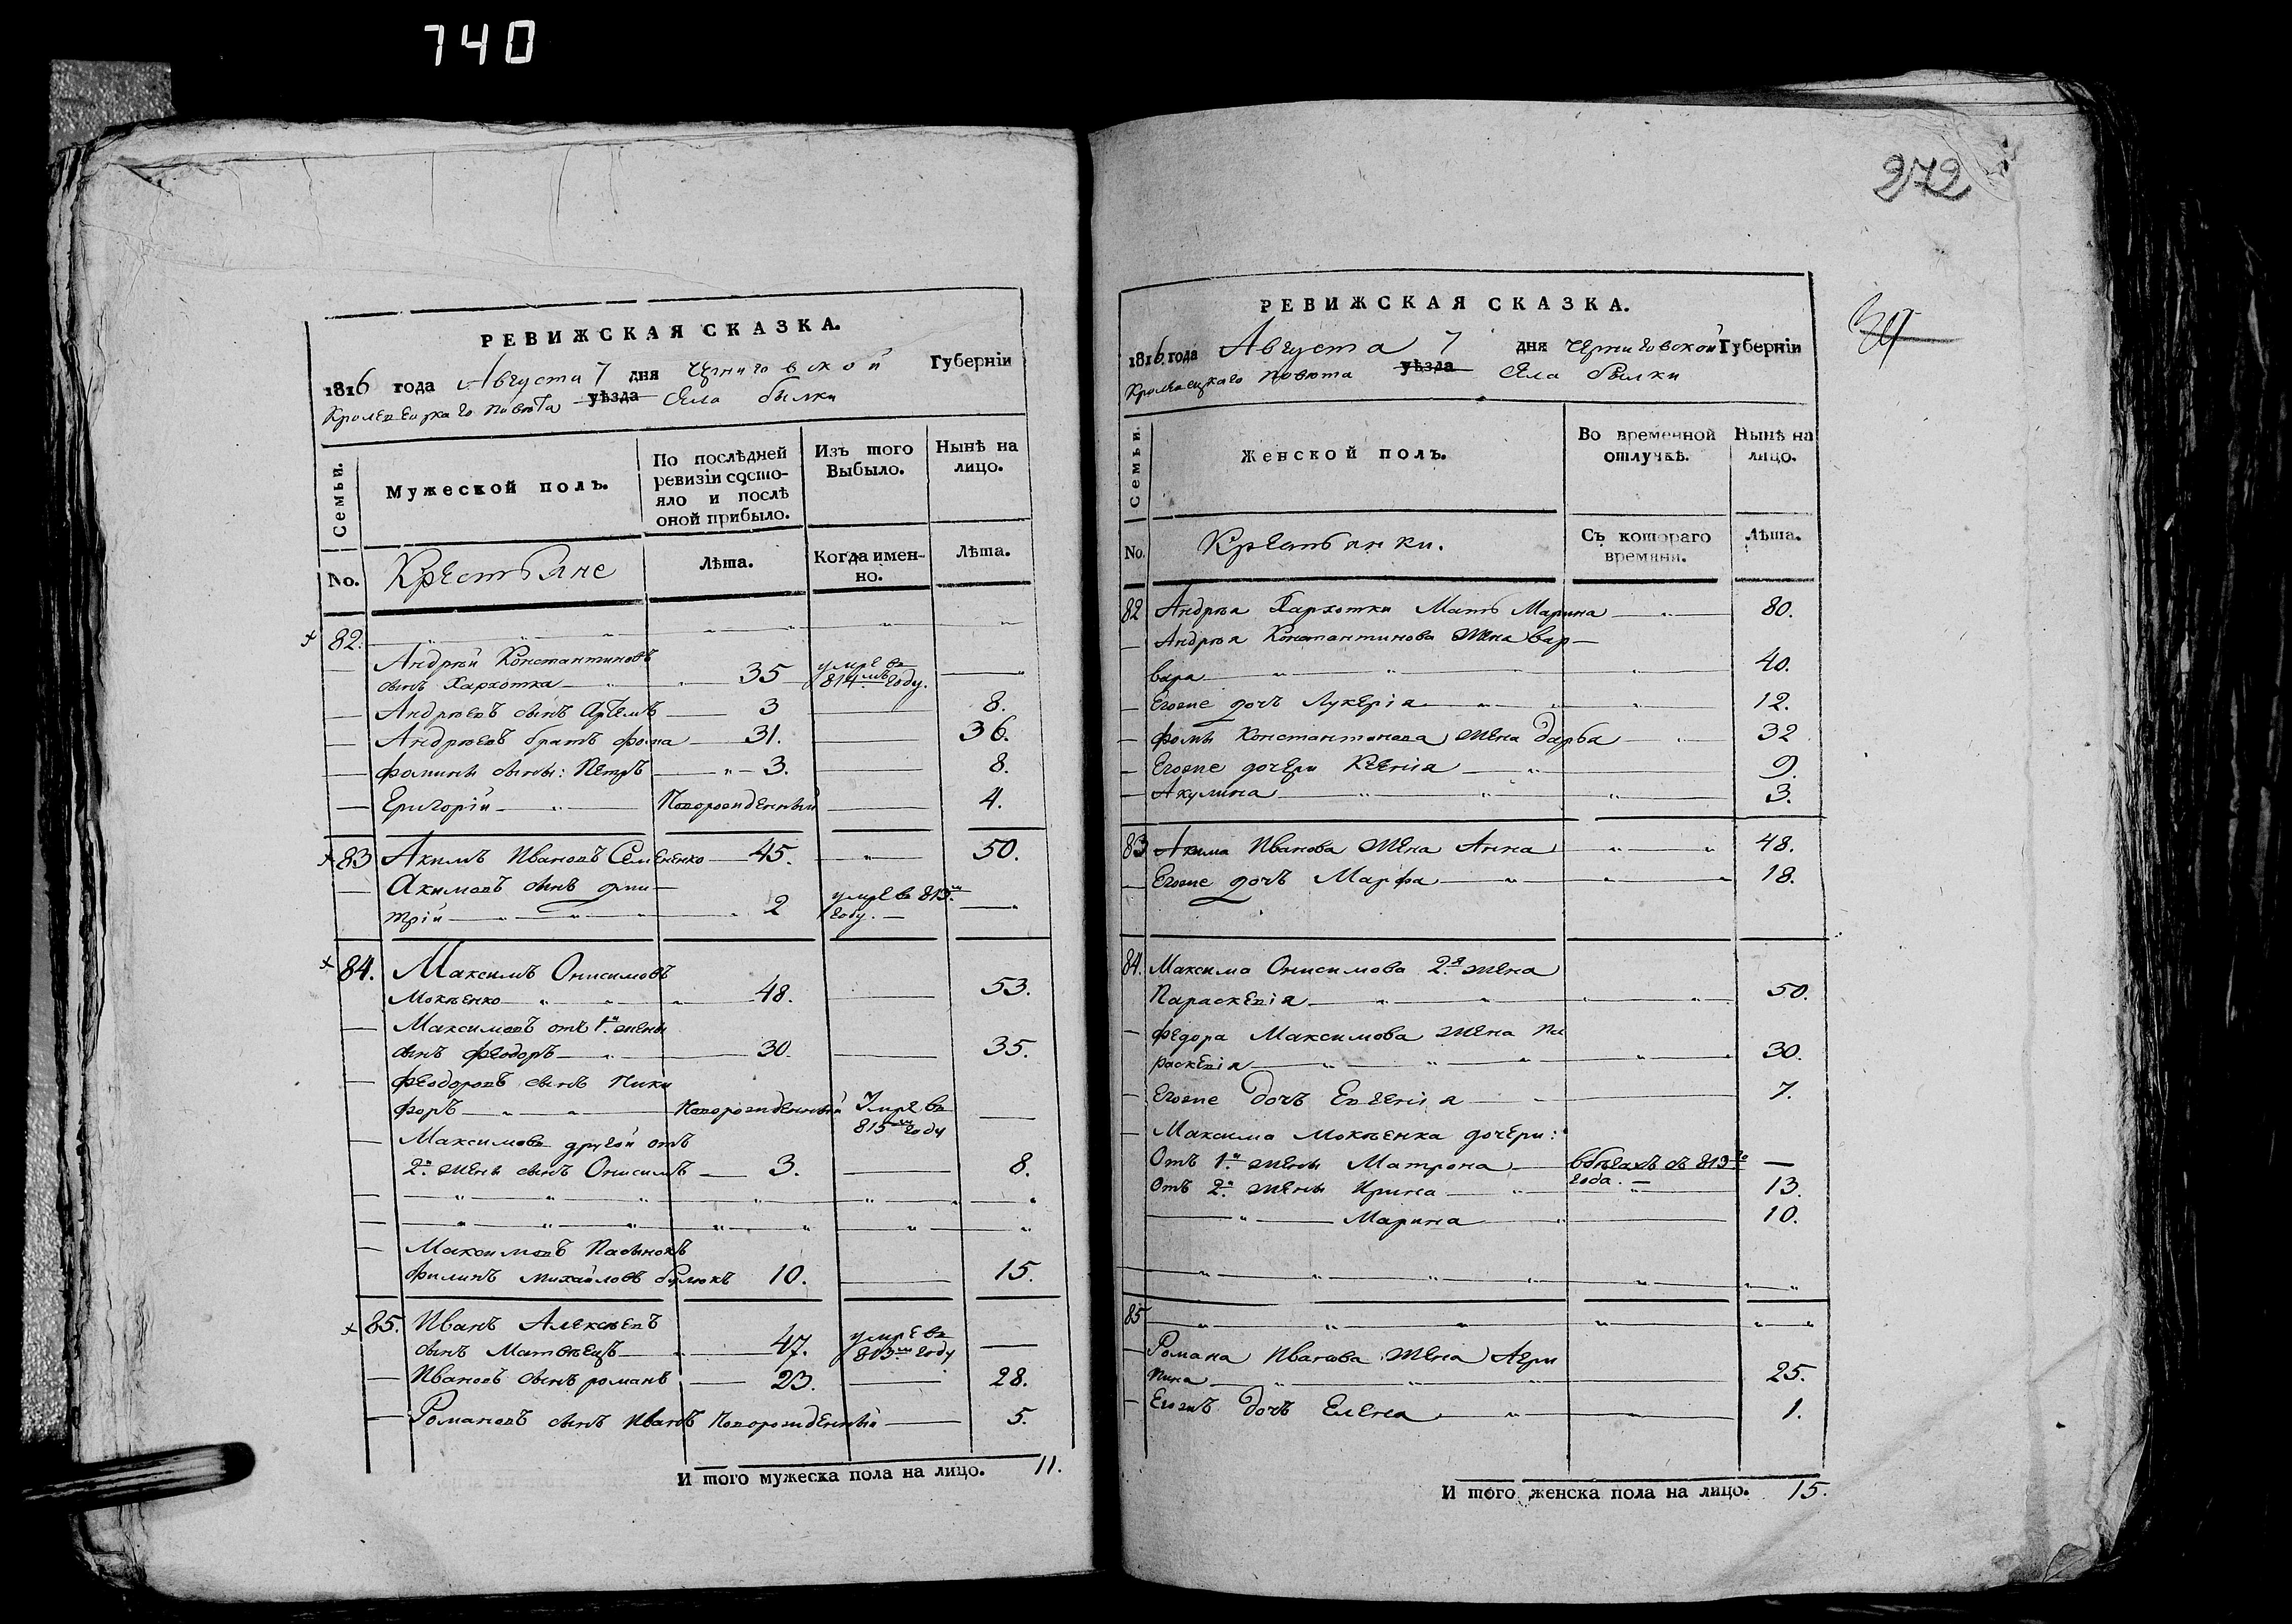 740
272
РЕВИЖСКАЯ СКАЗКА.
1816 года Августа 7 дня Черниговской Губерніи
Кролевецкаго повѣта уѣзда Села былки
Семьи.
Мужеской полъ.
По послѣдней ревизіи состо-
яло и послѣ
оной прибыло.
Изъ того
Выбыло.
Нынѣ на
лицо.
No.
Крестьяне
Лѣта.
Когда имен-
но.
Лѣта.
82.
Андрѣй Константиновъ
сынъ Хархотка 35 умре въ 814мъ году.
Андрѣевъ сынъ Артемъ 3 8.
Андрѣевъ братъ фома 31. 36.
фомины сыны: Петръ 3. 8.
Григорій Новорожденный 4.
83 Акимъ Ивановъ Семененко 45. 50.
Акимовъ сынъ дми-
трій 2 умре въ 813м году.
84. Максимъ Онисимовъ
Мокѣенко 48. 53.
Максимовъ отъ 1й жены
сынъ феодоръ 30. 35.
феодоровъ сынъ Ники
форъ Новорожденный Умре въ 815м году
Максимовъ другой отъ
2й жены сынъ Онисимъ 3. 8.
Максимовъ Пасынокъ
филипъ михайловъ 10. 15.
85. Иванъ Алексѣевъ
сынъ Матвѣецъ 47. умре въ 813м году
Ивановъ сынъ романъ 23. 28.
Романовъ сынъ Иванъ Новорожденный 5.
И того мужеска пола на лицо. 11.
РЕВИЖСКАЯ СКАЗКА.
1816 года Августа 7 дня Черниговской Губерніи
Кролевецкаго повѣта уѣзда Села былки
Семьи.
Женской полъ.
Во временной
отлучкѣ.
Нынѣ на
лицо.
No.
Крестьянки.
Съ котораго
времяни.
Лѣта.
82 Андрѣя Хархотки Мать Марина 80.
Андрѣя Константинова жена вар-
вара 40.
Егоже дочь Лукерія 12.
фомы Константинова жена Дарья 32
Егоже дочери Ксенія 9.
Акулина 3.
83 Акима Иванова жена Анна 48.
Егоже дочь Марфа 18.
84. Максима Онисимова 2я жена
Параскевія 50.
Федора Максимова жена Па
раскевія 30.
Егоже дочь Евгенія 7.
Максима Мокѣенка дочери:
Отъ 1й жены Матрона вбѣгахъ съ 813го года.
Отъ 2й жены Ирина 13.
Марина 10.
85
Романа Иванова жена Агри
пина 25.
Егожъ дочь Елена 1.
И того женска пола на лицо. 15.